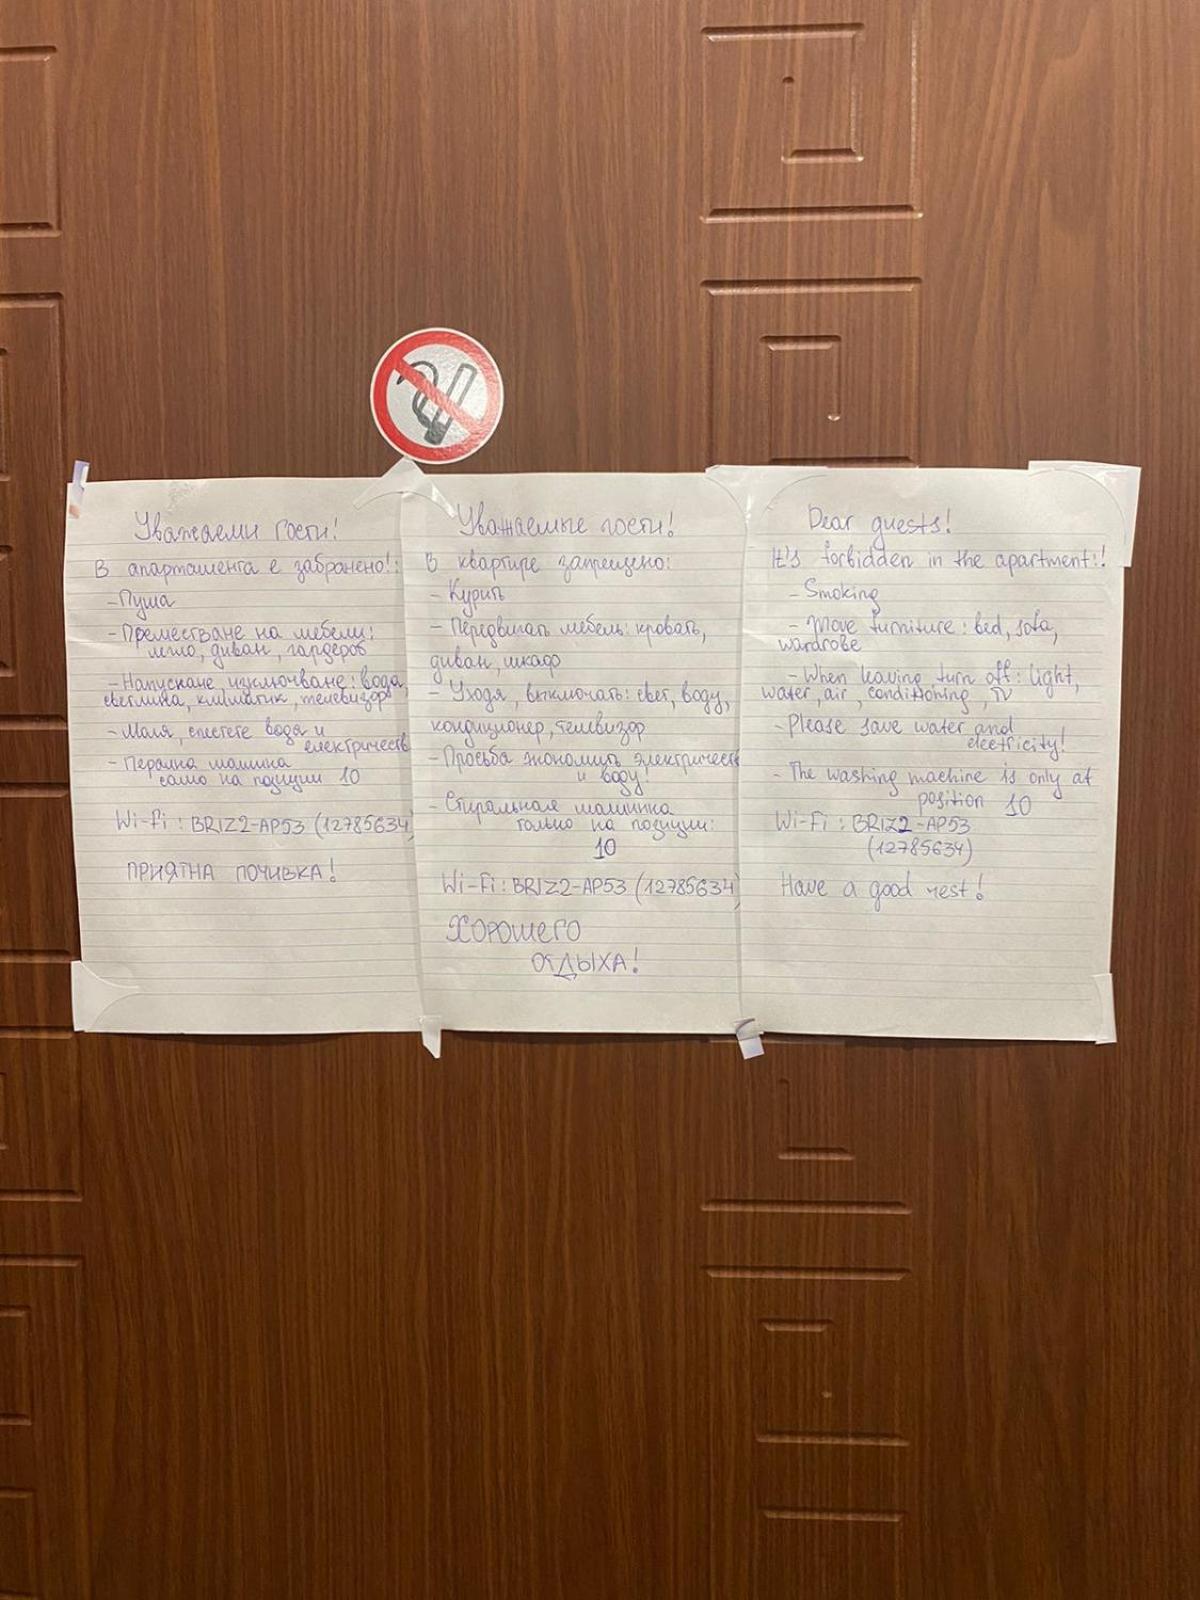 Уважаеми гости!
В апартамента е забранено!:
- Пуша
- Преместване на мебели:
легло, диван, гардероб
- Напускане, изключване: вода,
светлина, климатик, телевизор
- Моля, спестете вода и
електричеств
- Перална машина
само на позиции 10
Wi-Fi: BRIZ2-AP53 (12785634
ПРИЯТНА ПОЧИВКА!
Уважаемые гости!
В квартире запрещено:
- Курить
- Передвигать мебель: кровать,
диван, шкаф
- Уходя, выключать: свет, воду,
кондиционер, телевизор
- Просьба экономить электричест
и воду!
- Стиральная машинка
только на позиции:
10
Wi-Fi: BRIZ2-AP53 (12785634
ХОРОШЕГО
ОТДЫХА!
Dear guests!
It's forbidden in the apartment:!
- Smoking
- Move furniture: bed, sofa,
wardrobe
- When leaving turn off: light,
water, air, conditioning, TV
- Please save water and
electricity!
- The washing machine is only at
position 10
Wi-Fi: BRIZ2-AP53
(12785634)
Have a good rest!